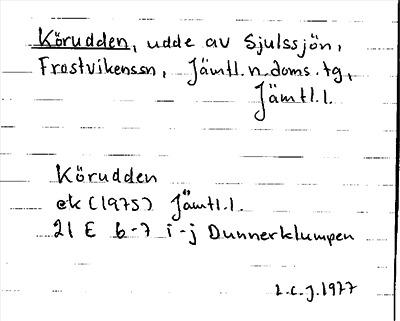 Körudden, udde av Sjulssjön,
Frostvikenssn, Jämtl.n.doms.tg,
Jämtl.l.
Körudden
ek (1975) Jämtl.l.
21 E 6-7 i-j Dunnerklumpen
L.C.J.1977